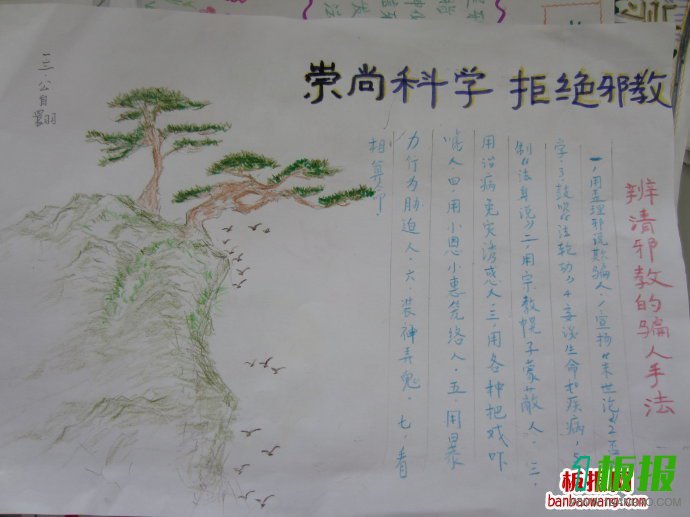 崇尚科学 拒绝邪教
辨清邪教的骗人手法
一,用歪理邪说欺骗人.1宣扬《末世论》2否
字3鼓吹《法轮功》4妄谈生命和疾病,5
制《法身说》二,用宗教幌子蒙蔽人.三,
用治病免灾诱惑人.三.用各种把戏吓
唬人四.用小恩小惠笼络人.五.用暴
力行为胁迫人.六.装神弄鬼.七.看
相算命.
一三.公自
板报
板报网
banbaowang.com